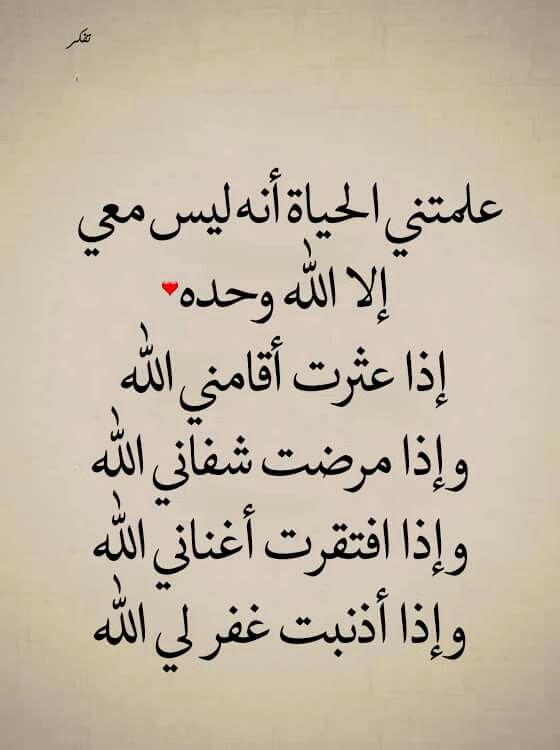 تفكر
علمتني الحياة أنه ليس معي
إلا الله وحده❤
إذا عثرت أقامني الله
وإذا مرضت شفاني الله
وإذا افتقرت أغناني الله
وإذا أذنبت غفر لي الله